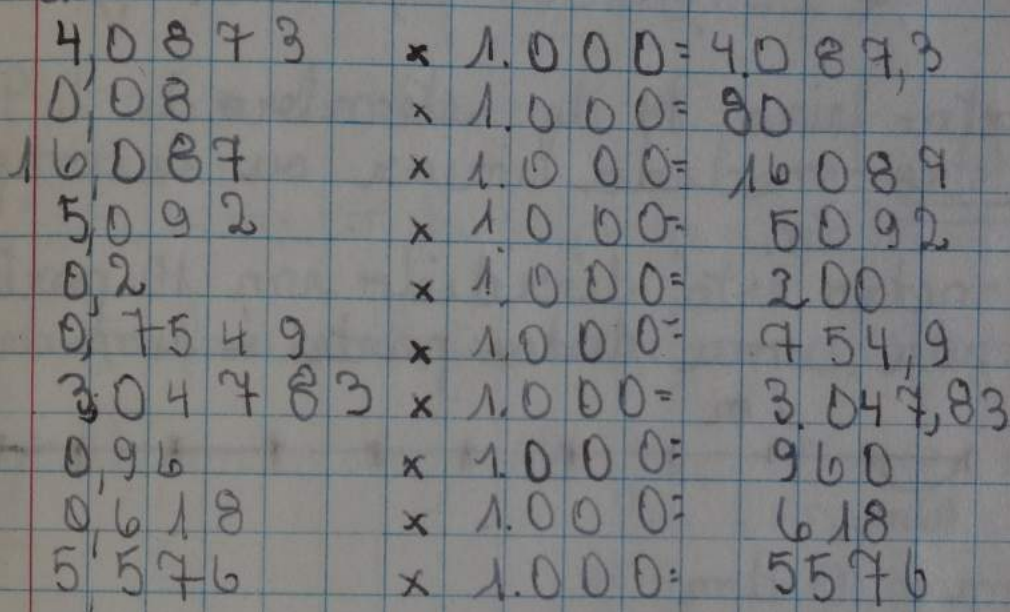 4,0873 x 1.000= 4.087,3
0,08 x 1.000= 80
16,087 x 1.000= 16087
5,092 x 1.000= 5092
0,2 x 1.000= 200
0,7549 x 1.000= 754,9
3,04783 x 1.000= 3.047,83
0,96 x 1.000= 960
0,618 x 1.000= 618
5,576 x 1.000= 5576